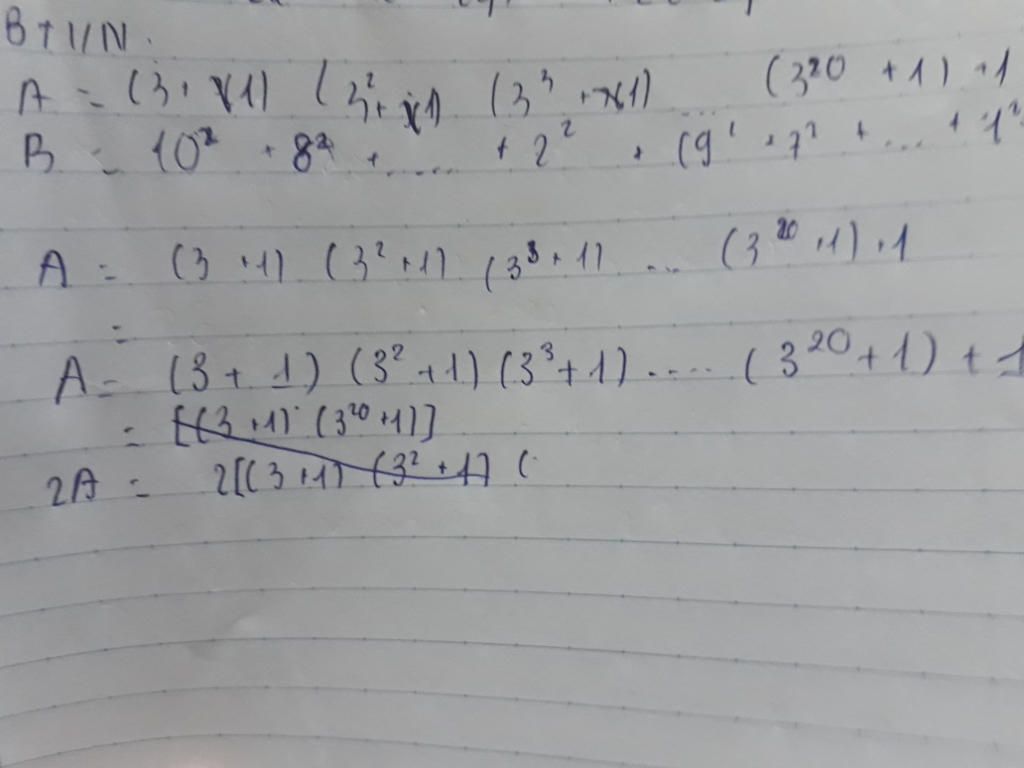 BTVN.
A = (3 + 1) (3² + 1) (3³ + 1) ... (3²⁰ + 1) + 1
B = 10² + 8² + .... + 2² + (9² + 7² + ... + 1²
A = (3 + 1) (3² + 1) (3³ + 1) ... (3²⁰ + 1) + 1
=
A = (3 + 1) (3² + 1) (3³ + 1) .... (3²⁰ + 1) + 1
= [(3 + 1) (3²⁰ + 1)]
2A = 2[(3 + 1) (3² + 1) (